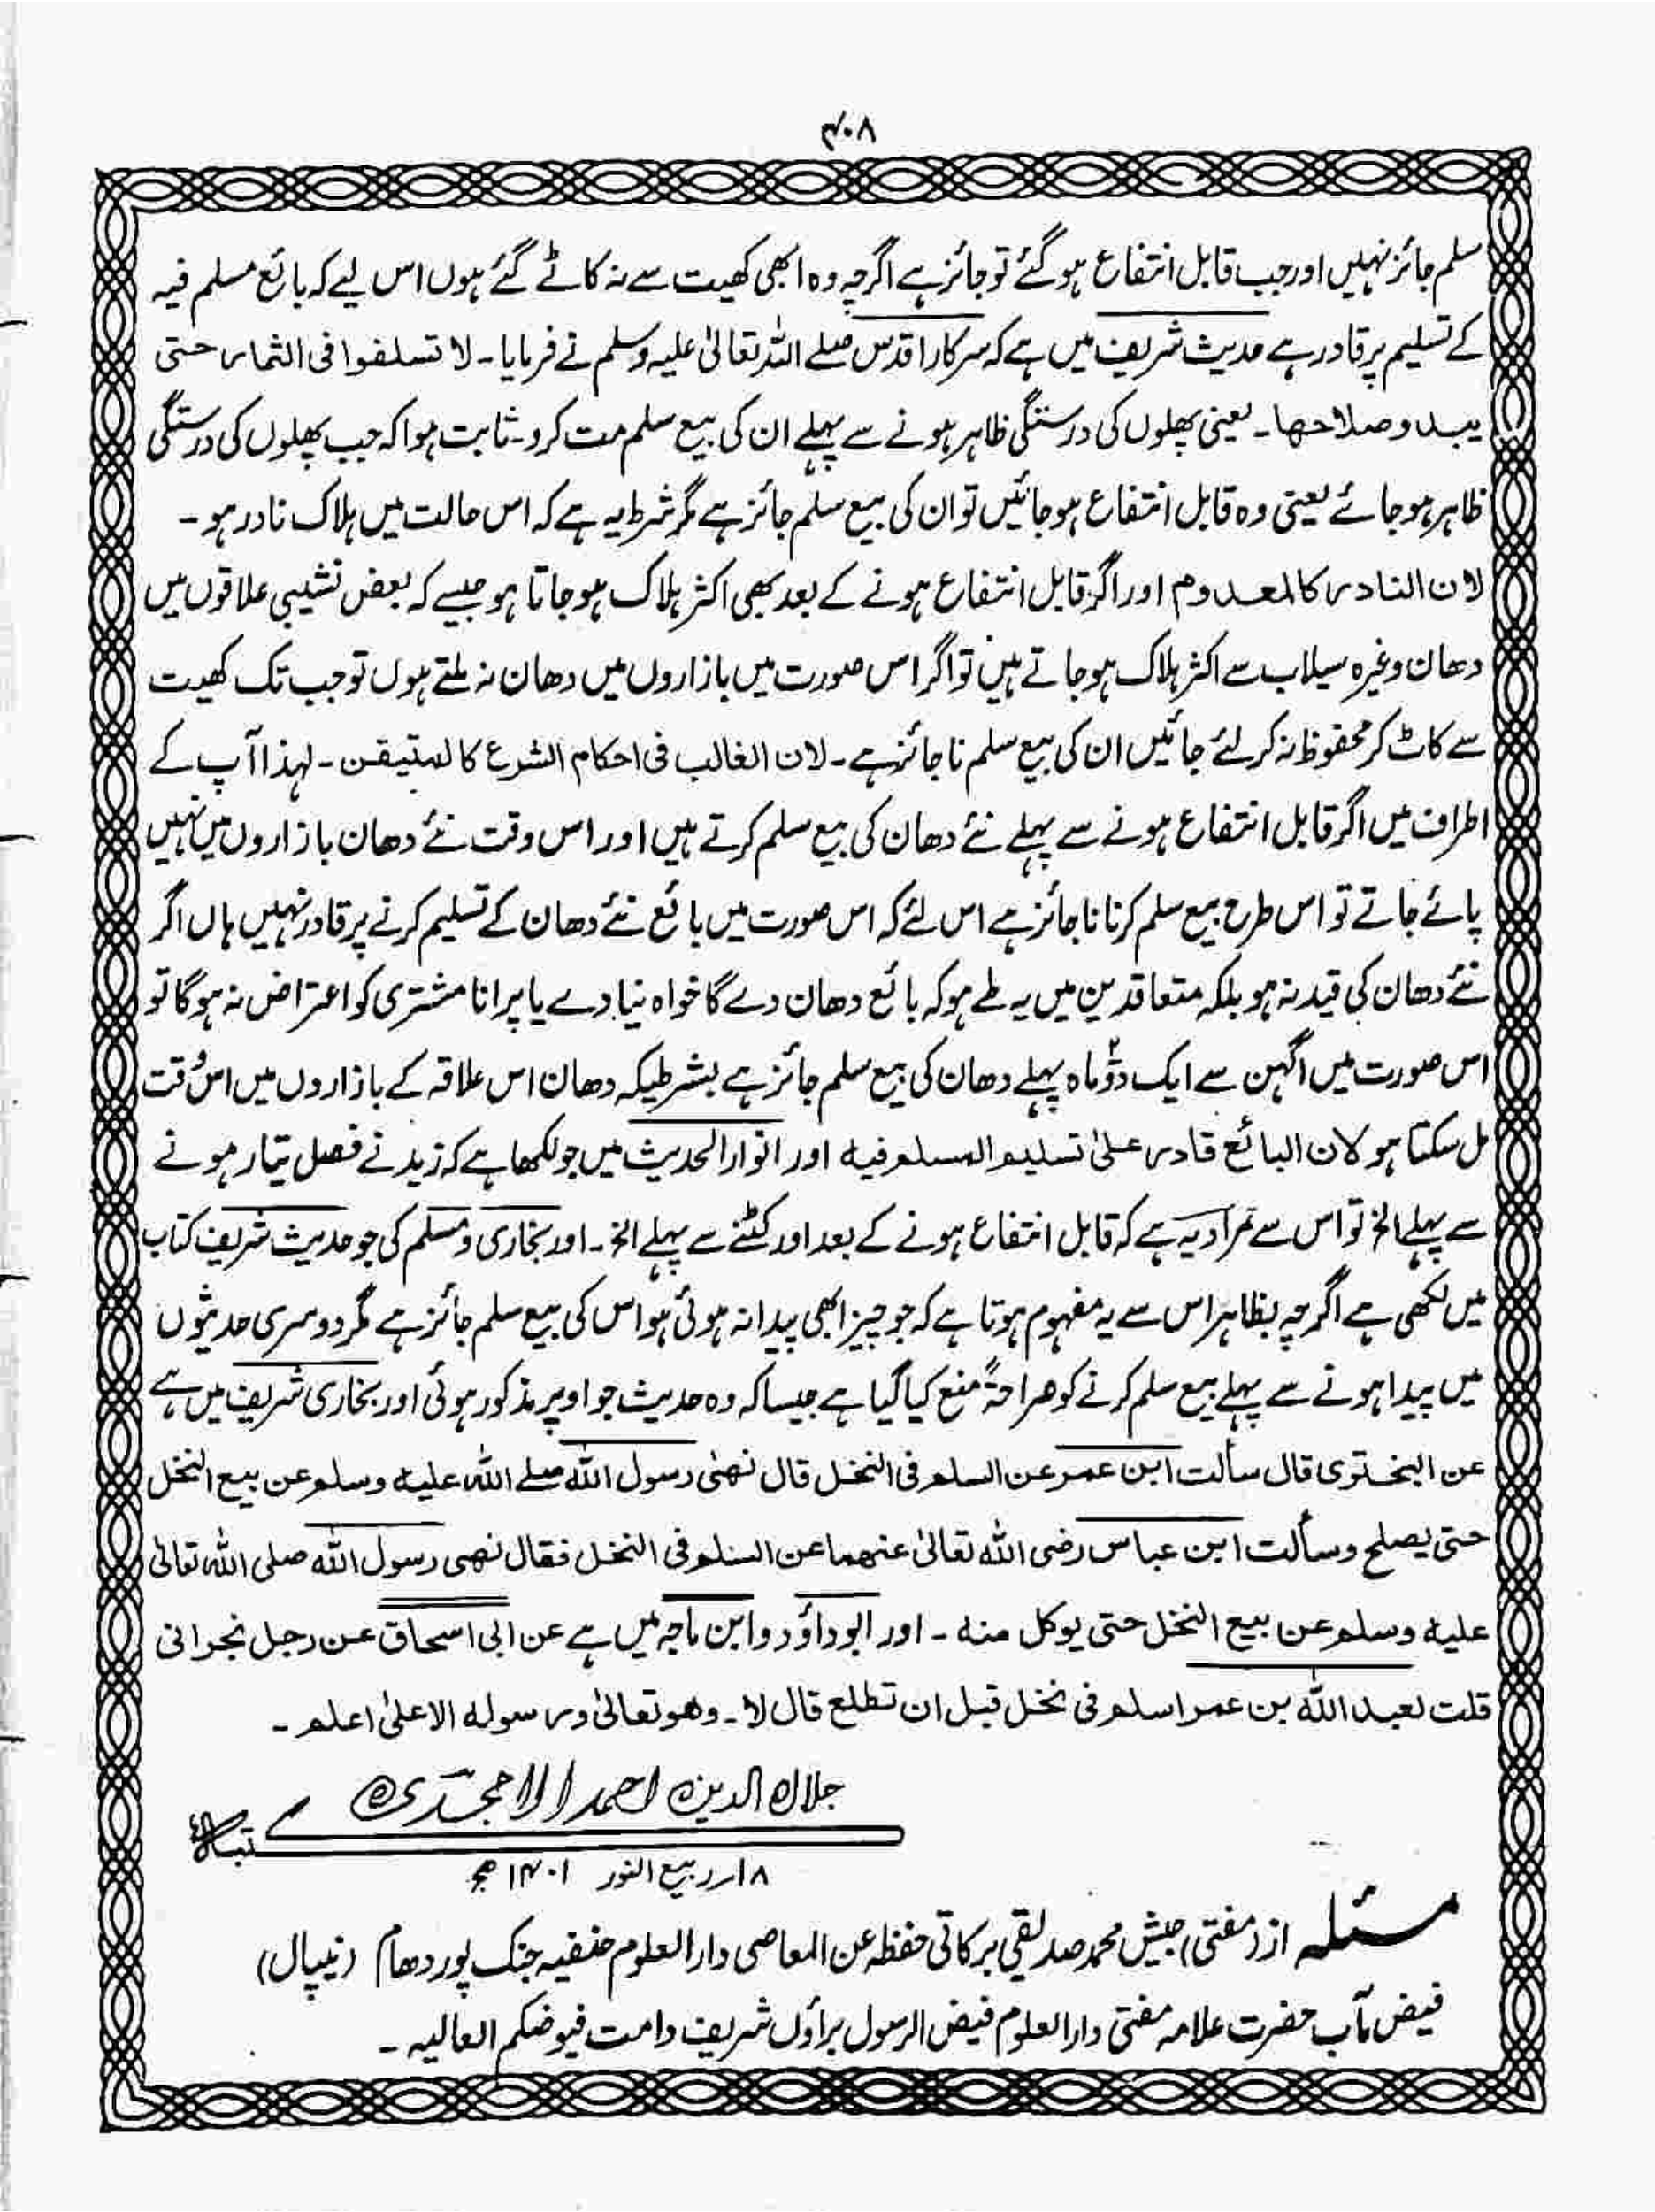 ۴۰۸
سلم جائز نہیں اور جب قابل انتفاع ہو گئے تو جائز ہے اگرچہ وہ ابھی کھیت سے نہ کاٹے گئے ہوں اس لیے کہ بائع مسلم فیہ
کے تسلیم پر قادر ہے حدیث شریف میں ہے کہ سرکار اقدس صلے اللہ تعالیٰ علیہ وسلم نے فرمایا۔ لا تسلفوا فی الثمار حتی
یبدو صلاحھا۔ یعنی پھلوں کی درستگی ظاہر ہونے سے پہلے ان کی بیع سلم مت کرو۔ ثابت ہوا کہ جب پھلوں کی درستگی
ظاہر ہو جائے یعنی وہ قابل انتفاع ہو جائیں تو ان کی بیع سلم جائز ہے مگر شرط یہ ہے کہ اس حالت میں ہلاک نادر ہو۔
لان النادر کالمعدوم اور اگر قابل انتفاع ہونے کے بعد بھی اکثر ہلاک ہو جاتا ہو جیسے کہ بعض نشیبی علاقوں میں
دھان وغیرہ سیلاب سے اکثر ہلاک ہو جاتے ہیں تو اگر اس صورت میں بازاروں میں دھان نہ ملتے ہوں تو جب تک کھیت
سے کاٹ کر محفوظ نہ کر لئے جائیں ان کی بیع سلم ناجائز ہے۔ لان الغالب فی احکام الشرع کالمتیقن۔ لہذا آپ کے
اطراف میں اگر قابل انتفاع ہونے سے پہلے نئے دھان کی بیع سلم کرتے ہیں اور اس وقت نئے دھان بازاروں میں نہیں
پائے جاتے تو اس طرح بیع سلم کرنا ناجائز ہے اس لئے کہ اس صورت میں بائع نئے دھان کے تسلیم کرنے پر قادر نہیں ہاں اگر
نئے دھان کی قید نہ ہو بلکہ متعاقدین میں یہ طے ہو کہ بائع دھان دے گا خواہ نیا دے یا پرانا مشتری کو اعتراض نہ ہوگا تو
اس صورت میں اگہن سے ایک دو ماہ پہلے دھان کی بیع سلم جائز ہے بشرطیکہ دھان اس علاقہ کے بازاروں میں اس وقت
مل سکتا ہو کلان البائع قادر علیٰ تسلیم المسلم فیہ اور انوار الحدیث میں جو لکھا ہے کہ زید نے فصل تیار ہونے
سے پہلے الخ تو اس سے مراد یہ ہے کہ قابل انتفاع ہونے کے بعد اور کٹنے سے پہلے الخ۔ اور بخاری و مسلم کی جو حدیث شریف کتاب
میں لکھی ہے اگرچہ بظاہر اس سے یہ مفہوم ہوتا ہے کہ جو چیز ابھی پیدا نہ ہوئی ہو اس کی بیع سلم جائز ہے مگر دوسری حدیثوں
میں پیدا ہونے سے پہلے بیع سلم کرنے کو صراحۃً منع کیا گیا ہے جیسا کہ وہ حدیث جو اوپر مذکور ہوئی اور بخاری شریف میں ہے
عن البختری قال سألت ابن عمر عن السلم فی النخل قال نھیٰ رسول اللہ صلے اللہ علیہ وسلم عن بیع النخل
حتی یصلح وسألت ابن عباس رضی اللہ تعالیٰ عنھما عن السلم فی النخل فقال نھی رسول اللہ صلی اللہ تعالیٰ
علیہ وسلم عن بیع النخل حتی یوکل منہ۔ اور ابو داؤد و ابن ماجہ میں ہے عن ابی اسحاق عن رجل نجرانی
قلت لعبد اللہ بن عمر اسلم فی نخل قبل ان تطلع قال لا۔ وھو تعالیٰ ورسولہ الاعلیٰ اعلم۔
جلال الدین احمد الامجدی
۱۸ ربیع النور ۱۴۰۱ھ
مسئلہ از (مفتی) جیش محمد صدیقی برکاتی حفظہ عن المعاصی دار العلوم حنفیہ جنک پور دھام (نیپال)
فیض مآب حضرت علامہ مفتی دار العلوم فیض الرسول براؤں شریف دامت فیوضکم العالیہ۔